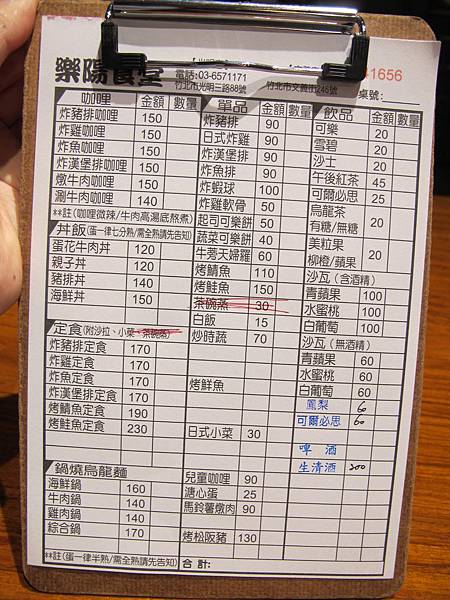 樂陽食堂
電話:03-6571171
竹北市光明三路88號
竹北市文義街246號
1656
桌號:
咖哩 金額 數量
炸豬排咖哩 150
炸雞咖哩 150
炸魚咖哩 150
炸漢堡排咖哩 150
燉牛肉咖哩 150
涮牛肉咖哩 140
**註(咖哩微辣/牛肉高湯底熬煮)
丼飯(蛋一律七分熟/需全熟請先告知)
蛋花牛肉丼 120
親子丼 120
豬排丼 140
海鮮丼 150
定食(附沙拉、小菜、茶碗蒸)
炸豬排定食 170
炸雞定食 170
炸魚定食 170
炸漢堡排定食 170
烤鯖魚定食 190
烤鮭魚定食 230
鍋燒烏龍麵
海鮮鍋 160
牛肉鍋 140
雞肉鍋 140
綜合鍋 170
**註(蛋一律半熟/需全熟請先告知)
單品 金額 數量
炸豬排 90
日式炸雞 90
炸漢堡排 90
炸魚排 90
炸蝦球 100
炸雞軟骨 50
起司可樂餅 50
蔬菜可樂餅 40
牛蒡天婦羅 60
烤鯖魚 110
烤鮭魚 150
茶碗蒸 30
白飯 15
炒時蔬 70
烤鮮魚
日式小菜 30
兒童咖哩 90
溏心蛋 25
馬鈴薯燉肉 90
烤松阪豬 130
合計:
飲品 金額 數量
可樂 20
雪碧 20
沙士 20
午後紅茶 45
可爾必思 25
烏龍茶
有糖/無糖 20
美粒果
柳橙/蘋果 20
沙瓦(含酒精)
青蘋果 100
水蜜桃 100
白葡萄 100
沙瓦(無酒精)
青蘋果 60
水蜜桃 60
白葡萄 60
鳳梨 60
可爾必思 60
啤酒
生清酒 200